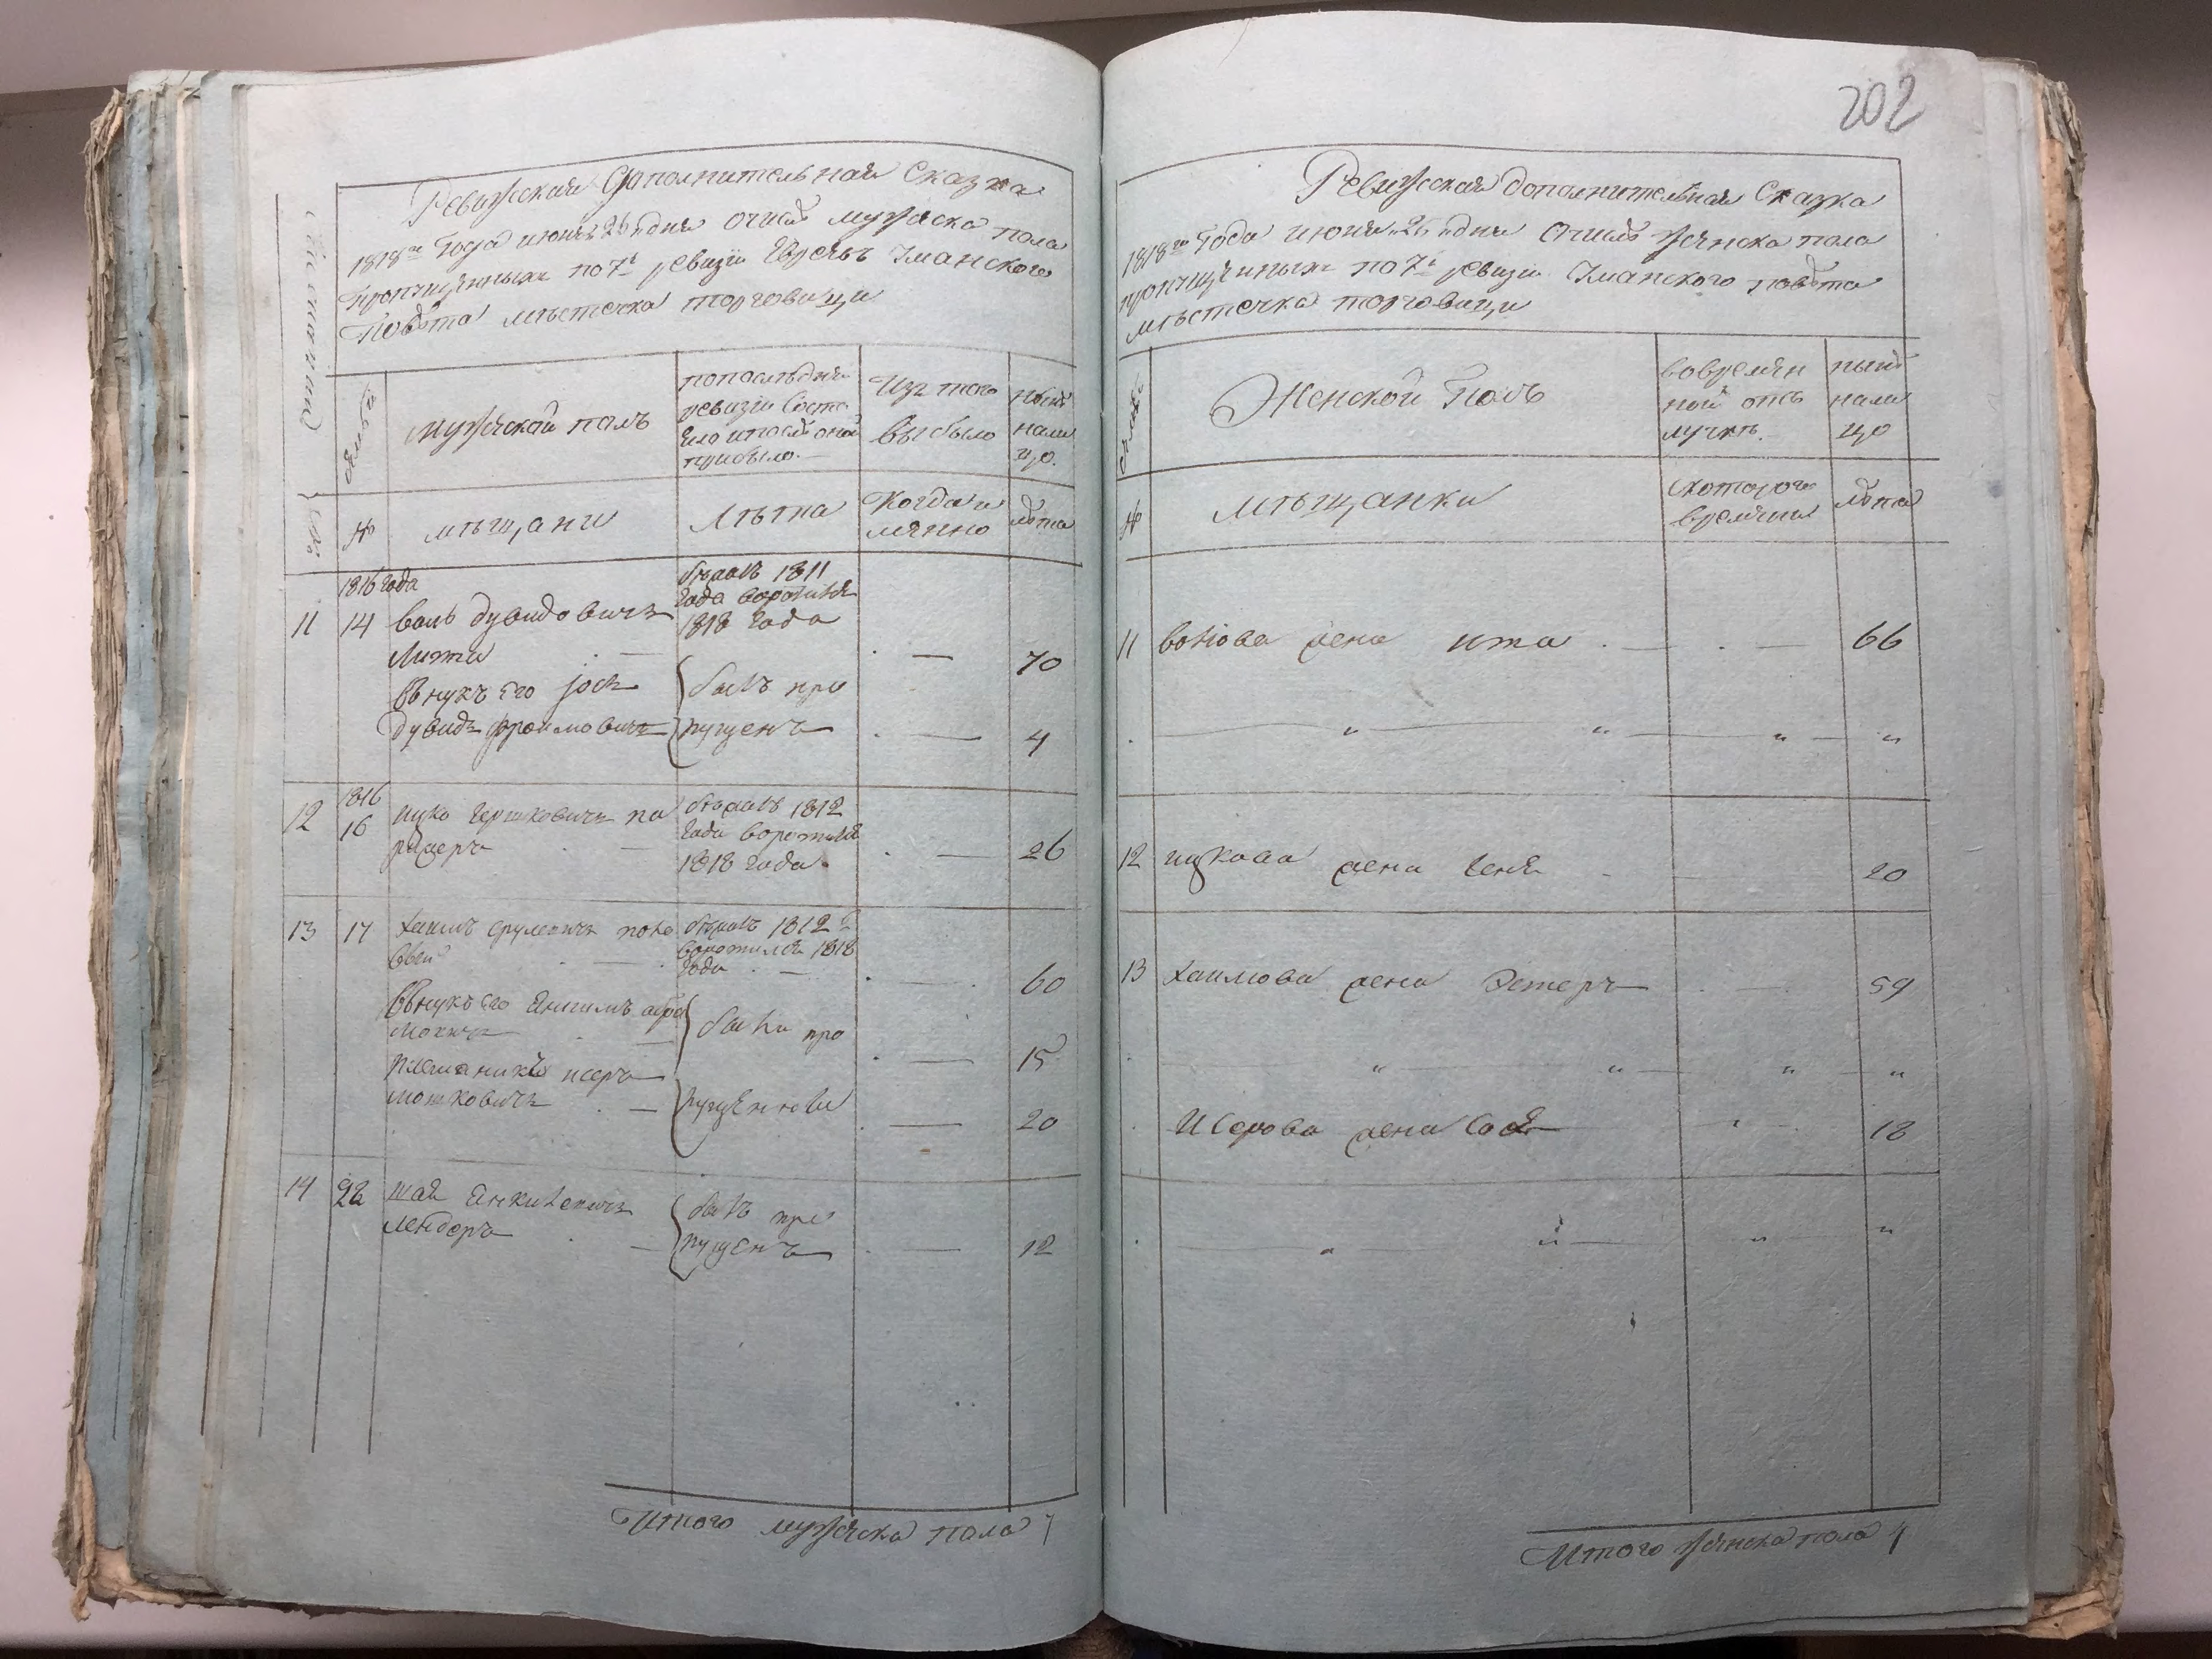 202
Ревижская Дополнительная Сказка
1818го Года июня 25 дня О числе мужеска пола
пропущенных по 7й ревизiи Евреевъ Уманского
Повета местечка торговици
мужеской полъ
по последней
ревизiи состо
яло и после оной
прибыло.
Изъ того
выбыло
ныне
нали
цо.
№
мещани
Лета
Когда и
мянно
лета
1816 года
11 14 воль дувидовичъ
Лита
бежалъ 1811
Года воротился
1818 Года
70
Внукъ его
дувидъ фроимовичъ
былъ про
пущенъ
4
12 1816
16 ицко гершковичъ
бежалъ 1812
Года воротился
1818 Года
26
13 17 хаимъ срулевичъ
бежалъ 1812
воротился 1818
Года
60
Внукъ его
были про
15
племяникъ исеръ
мошковичъ
пущенные
20
14 22 шая янкилевичъ
лендеръ
былъ про
пущенъ
12
Итого мужеска пола 7
Ревижская дополнительная Сказка
1818го Года июня 25 дня О числе женска пола
пропущенных по 7й ревизiи Уманского повета
местечка торговици
семьи
Женской Полъ
во времян
ной отъ
лучке.
ныне
нали
цо
№
мещанки
с которого
времяни
лета
11 волiова жена ита 66
12 ицкова жена геня 20
13 хаимова жена Эстеръ 59
Исерова жена 18
Итого женска пола 4